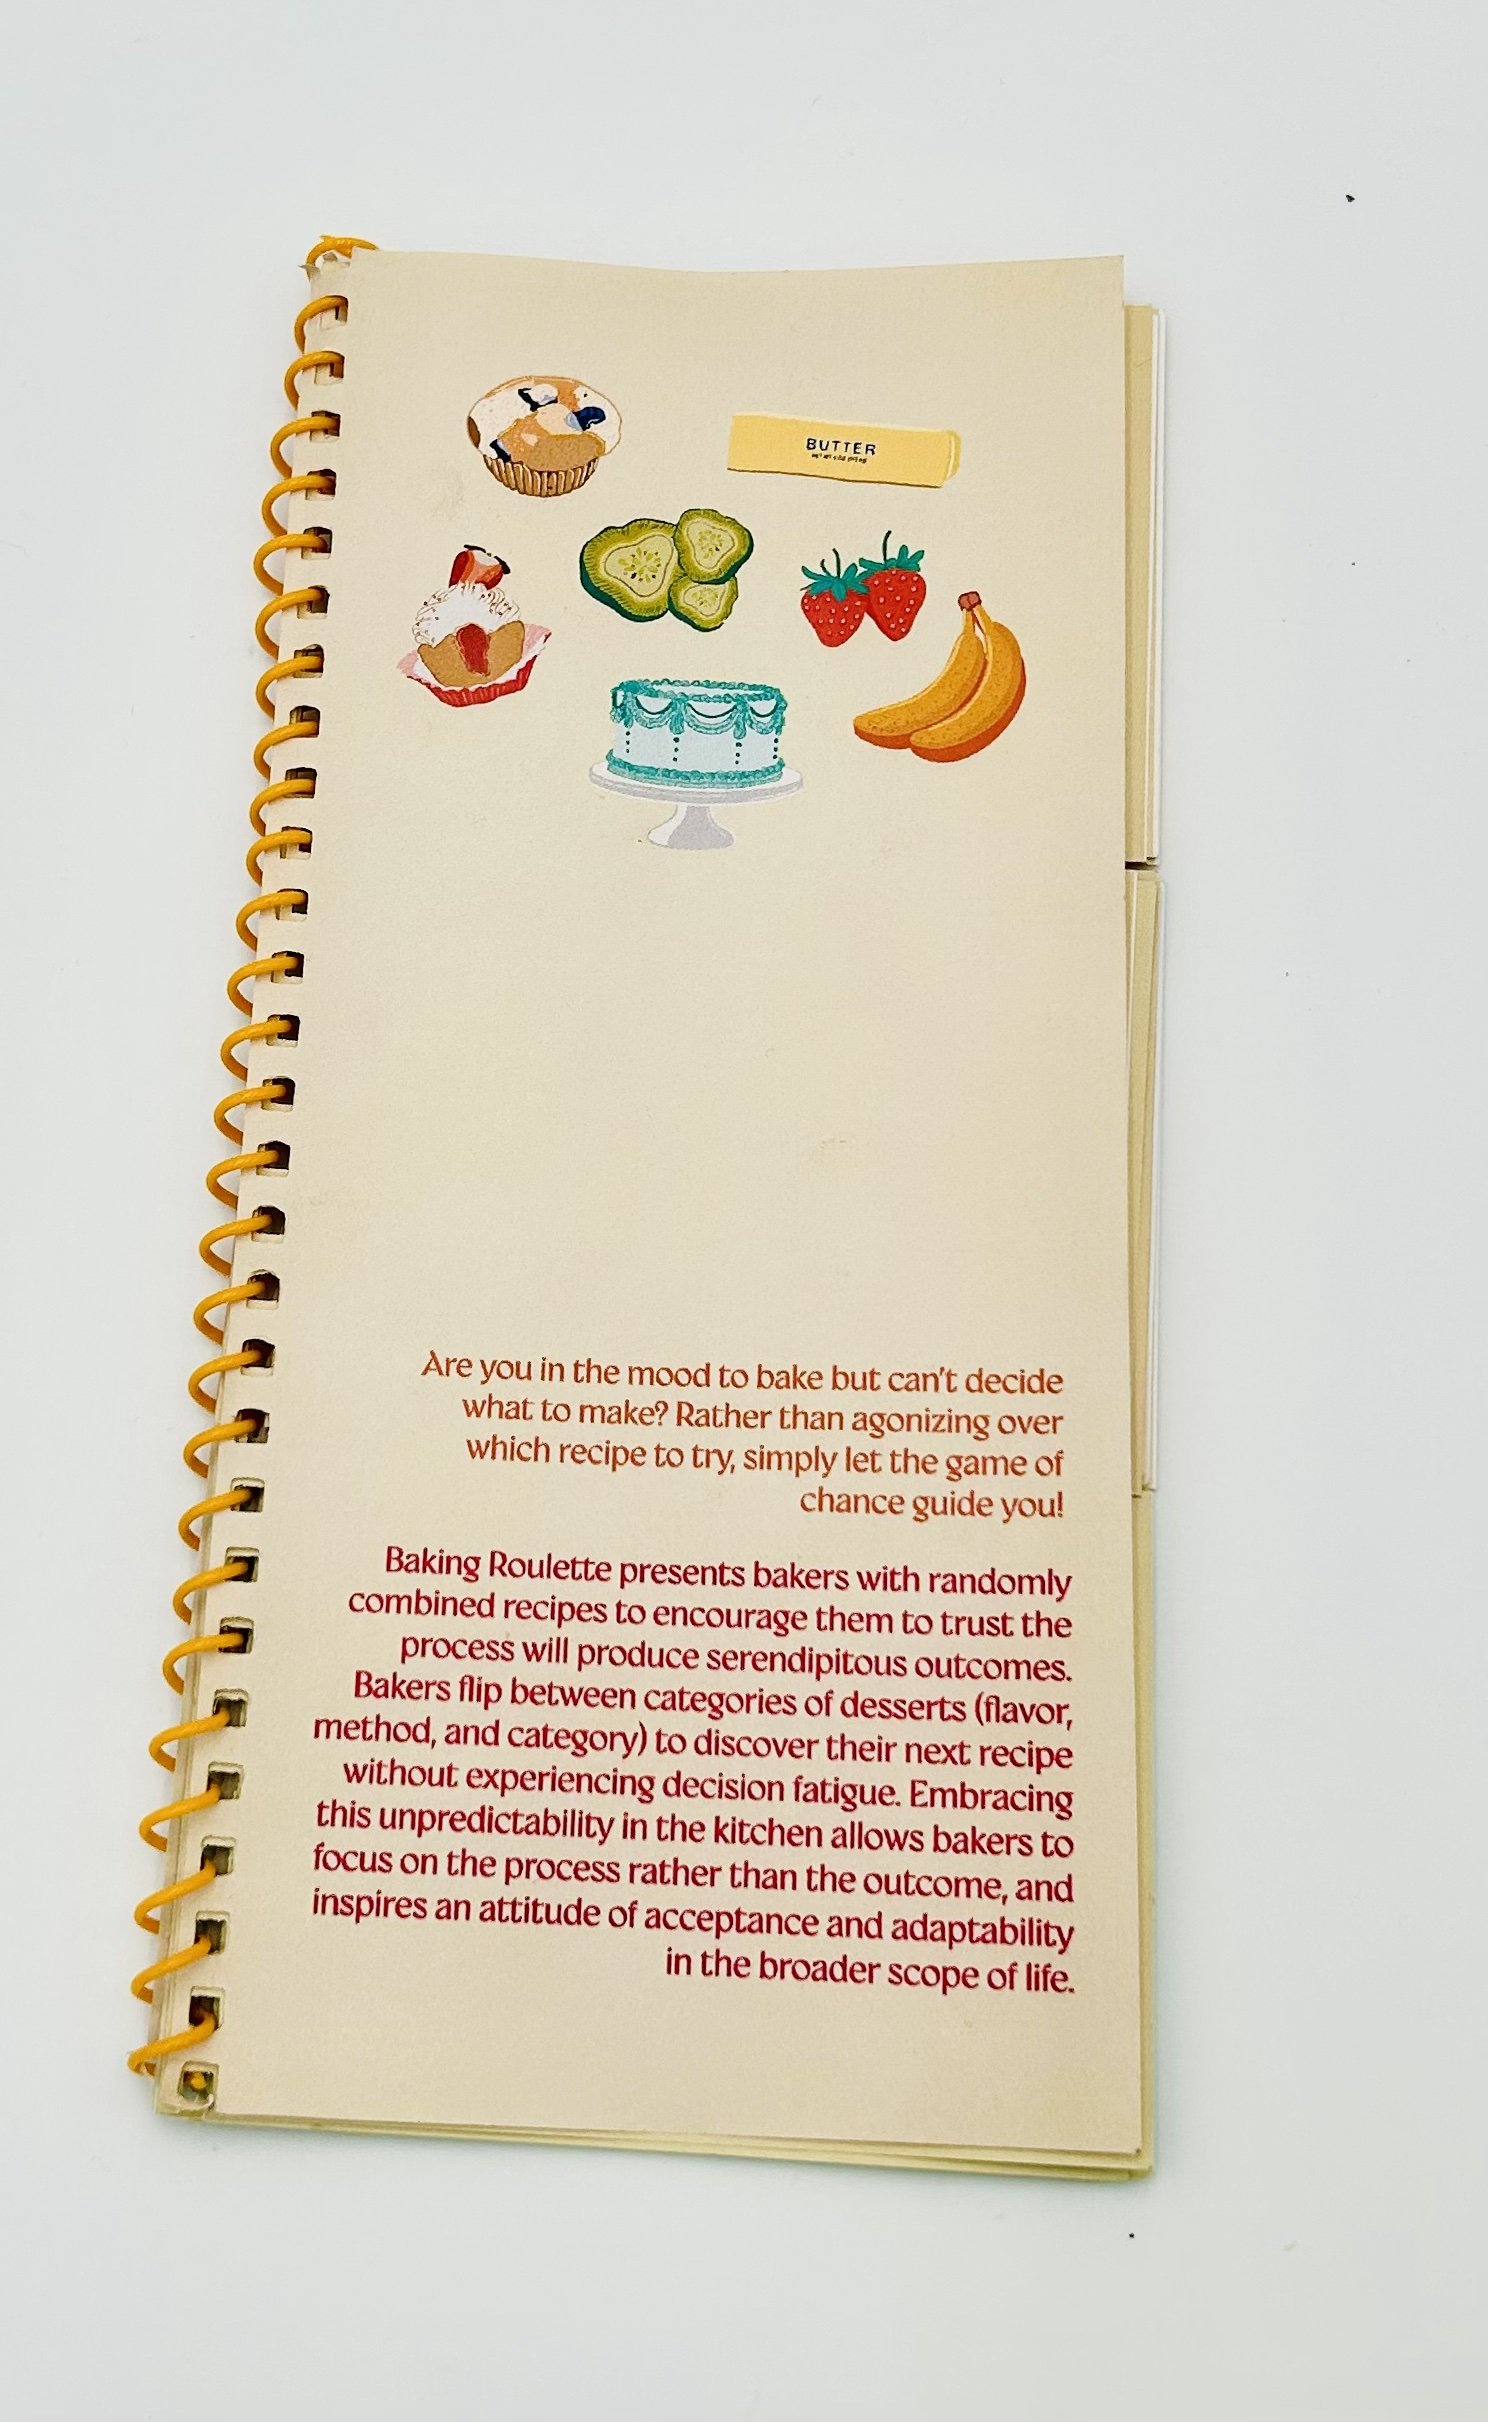 BUTTER
Are you in the mood to bake but can't decide
what to make? Rather than agonizing over
which recipe to try, simply let the game of
chance guide you!
Baking Roulette presents bakers with randomly
combined recipes to encourage them to trust the
process will produce serendipitous outcomes.
Bakers flip between categories of desserts (flavor,
method, and category) to discover their next recipe
without experiencing decision fatigue. Embracing
this unpredictability in the kitchen allows bakers to
focus on the process rather than the outcome, and
inspires an attitude of acceptance and adaptability
in the broader scope of life.